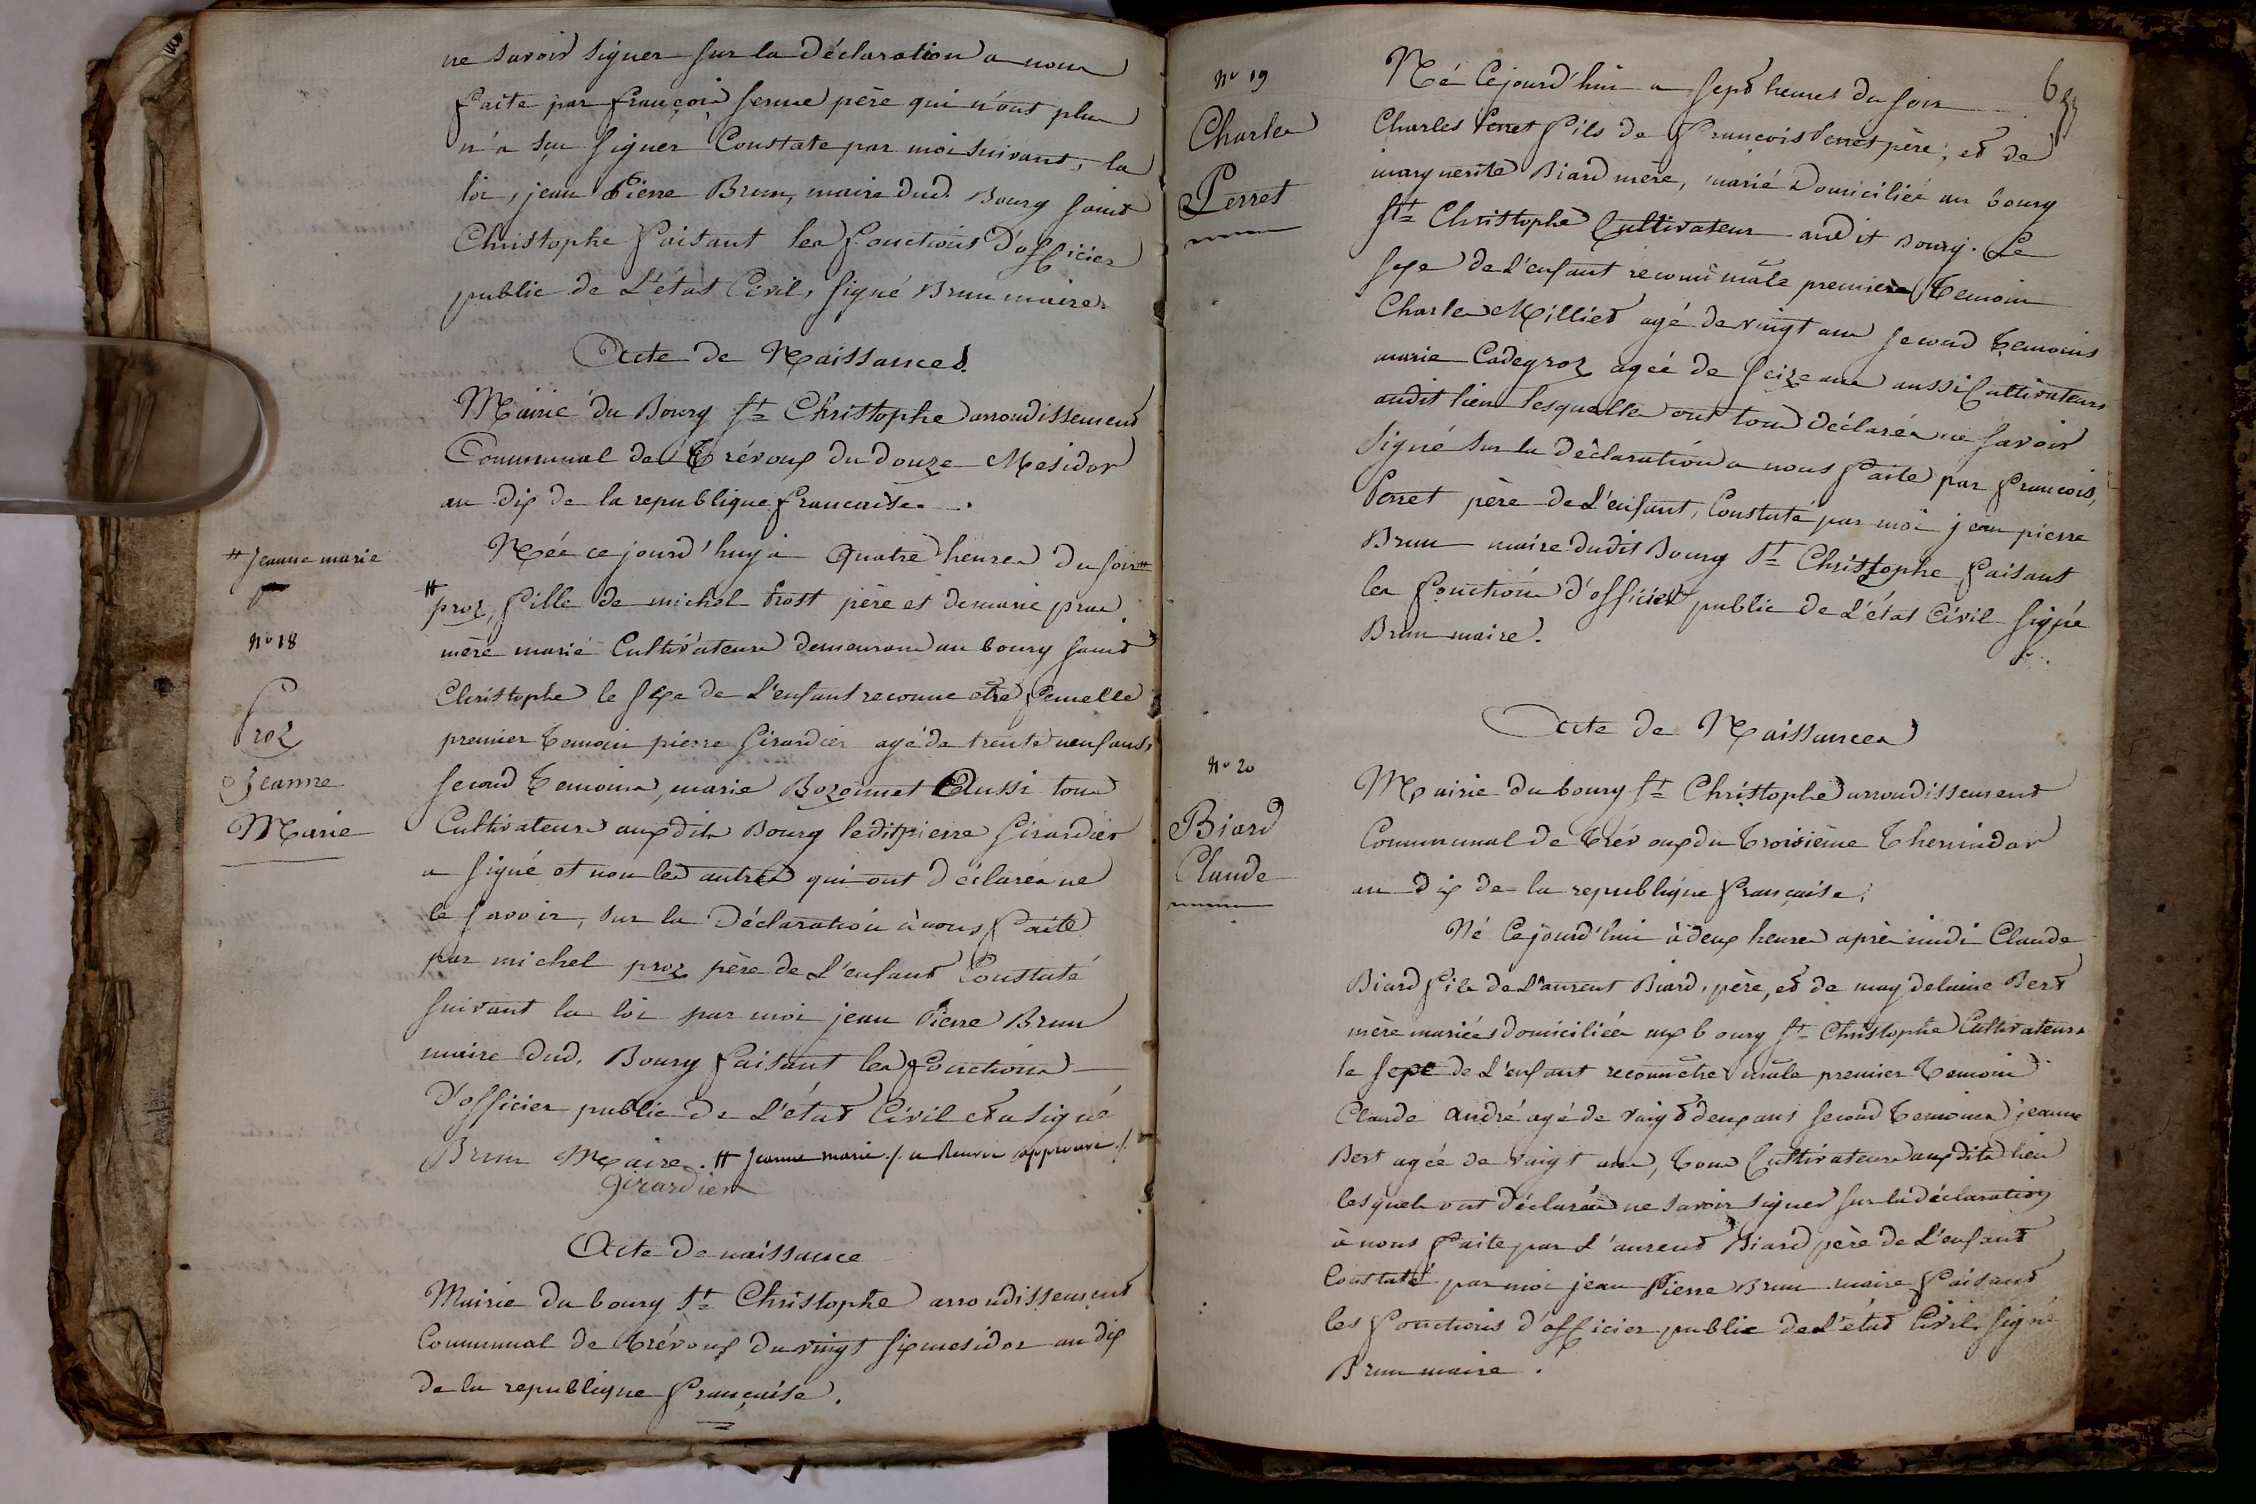 ne savoir signer sur la Déclaration a nous
faite par françois ferme père qui n'ont plus
n'a sçu signer Constate par moi suivant, la
loi, jean Pierre Brun, maire dud. Bourg saint
Christophe faisant les fonctions D'officier
public de L'état Civil, signé Brun maire.
Acte de Naissances.
Mairie du Bourg St Christophe arrondissement
Communal de Trévoux du douze Mesidor
an dix de la republique francaise.
# Jeanne marie
Née ce jourd'huy à Quatre heures du soir #
# proz, fille de michel trost père et de marie prus
mère marié Cultivateurs demeurans au bourg saint
Christophe le sexe de L'enfant reconnu etre femelle
premier temoin pierre Girardier agé de trente neuf ans,
second temoins, marie Bozonnet Aussi tous
Cultivateurs auxdits Bourg ledit pierre Girardier
a signé et non les autres qui ont déclarés ne
le savoir, sur la Déclaration à nous faite
par michel proz père de L'enfant Constaté
suivant la loi par moi jean Pierre Brun
maire dud. Bourg faisant les fonctions
D'officier public de L'état Civil et a signé
Brun Maire. # Jeanne marie ./. a Renvoi approuvé ./.
Girardier
No 18
Proz
Jeanne
Marie
Acte de naissance
Mairie du bourg St Christophe arrondissement
Communal de trévoux du vingt six mesidor an dix
de la republique française.
No 19
Charles
Perret
6
Né Cejourd'hui a sept heures du soir
Charles Perret fils de francois Perret père, et de
marguerite Biard mère, marié Domiciliés au bourg
St Christophe Cultivateur audit Bourg. Le
sexe de L'enfant reconnu mâle premiere temoin
Charles Milliet agé de vingt ans second temoins
marie Cadegroz agée de seize ans aussi Cultivateurs
audit lieu lesquelle ont tous déclarés ne savoir
signé sur la déclaration a nous faite par francois,
Perret père de L'enfant, Constaté par moi jean pierre
Brun maire dudit Bourg St Christophe faisant
les fonctions d'officier public de L'état Civil signé
Brun maire.
Acte de Naissances
No 20
Biard
Claude
Mairie du bourg St Christophe arrondissement
Communal de trévoux du troisième thermidor
an dix de la republique française,
Né Cejourd'hui à deux heures après midi Claude
Biard fils de L'aurent Biard, père, et de magdelaine Bert
mère mariés domiciliés aux bourg St Christophe Cultivateurs
le sexe de L'enfant reconnu être mâle premier temoin
Claude andré agé de vingt deux ans second temoins jeanne
Bert agée de vingt ans, tous Cultivateurs auxdits lieu
lesquels ont déclarés ne savoir signer sur la déclaration
à nous faite par L'aurent Biard père de L'enfant
Constaté par moi jean Pierre Brun maire faisant
les fonctions d'officier public de L'état Civil signé
Brun maire.